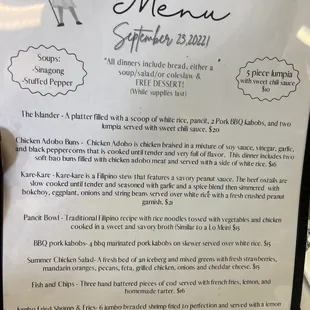 Menu
September 23, 2022!
Soups:
-Sinagong
-Stuffed Pepper
*All dinners include bread, either a
soup/salad/or coleslaw &
FREE DESSERT!
(White supplies last)
5 piece lumpia
with sweet chili sauce
$10
The Islander - A platter filled with a scoop of white rice, pancit, 2 Pork BBQ kabobs, and two
lumpia served with sweet chili sauce. $20
Chicken Adobo Buns - Chicken Adobo is chicken braised in a mixture of soy sauce, vinegar, garlic,
and black peppercorns that is cooked until tender and very full of flavor. This dinner includes two
soft bao buns filled with chicken adobo meat and served with a side of white rice. $16
Kare-Kare - Kare-kare is a Filipino stew that features a savory peanut sauce. The beef oxtails are
slow cooked until tender and seasoned with garlic and a spice blend then simmered with
bokchoy, eggplant, onions and string beans served over white rice with a fresh crushed peanut
garnish. $21
Pancit Bowl - Traditional Filipino recipe with rice noodles tossed with vegetables and chicken
cooked in a sweet and savory broth (Similar to a Lo Mein) $15
BBQ pork kabobs- 4 bbq marinated pork kabobs on skewer served over white rice. $15
Summer Chicken Salad- A fresh bed of an iceberg and mixed greens with fresh strawberries,
mandarin oranges, pecans, feta, grilled chicken, onions and cheddar cheese. $15
Fish and Chips - Three hand battered pieces of cod served with french fries, lemon, and
homemade tarter. $16
Jumbo Fried Shrimp & Fries- 6 jumbo breaded shrimp fried to perfection and served with a lemon